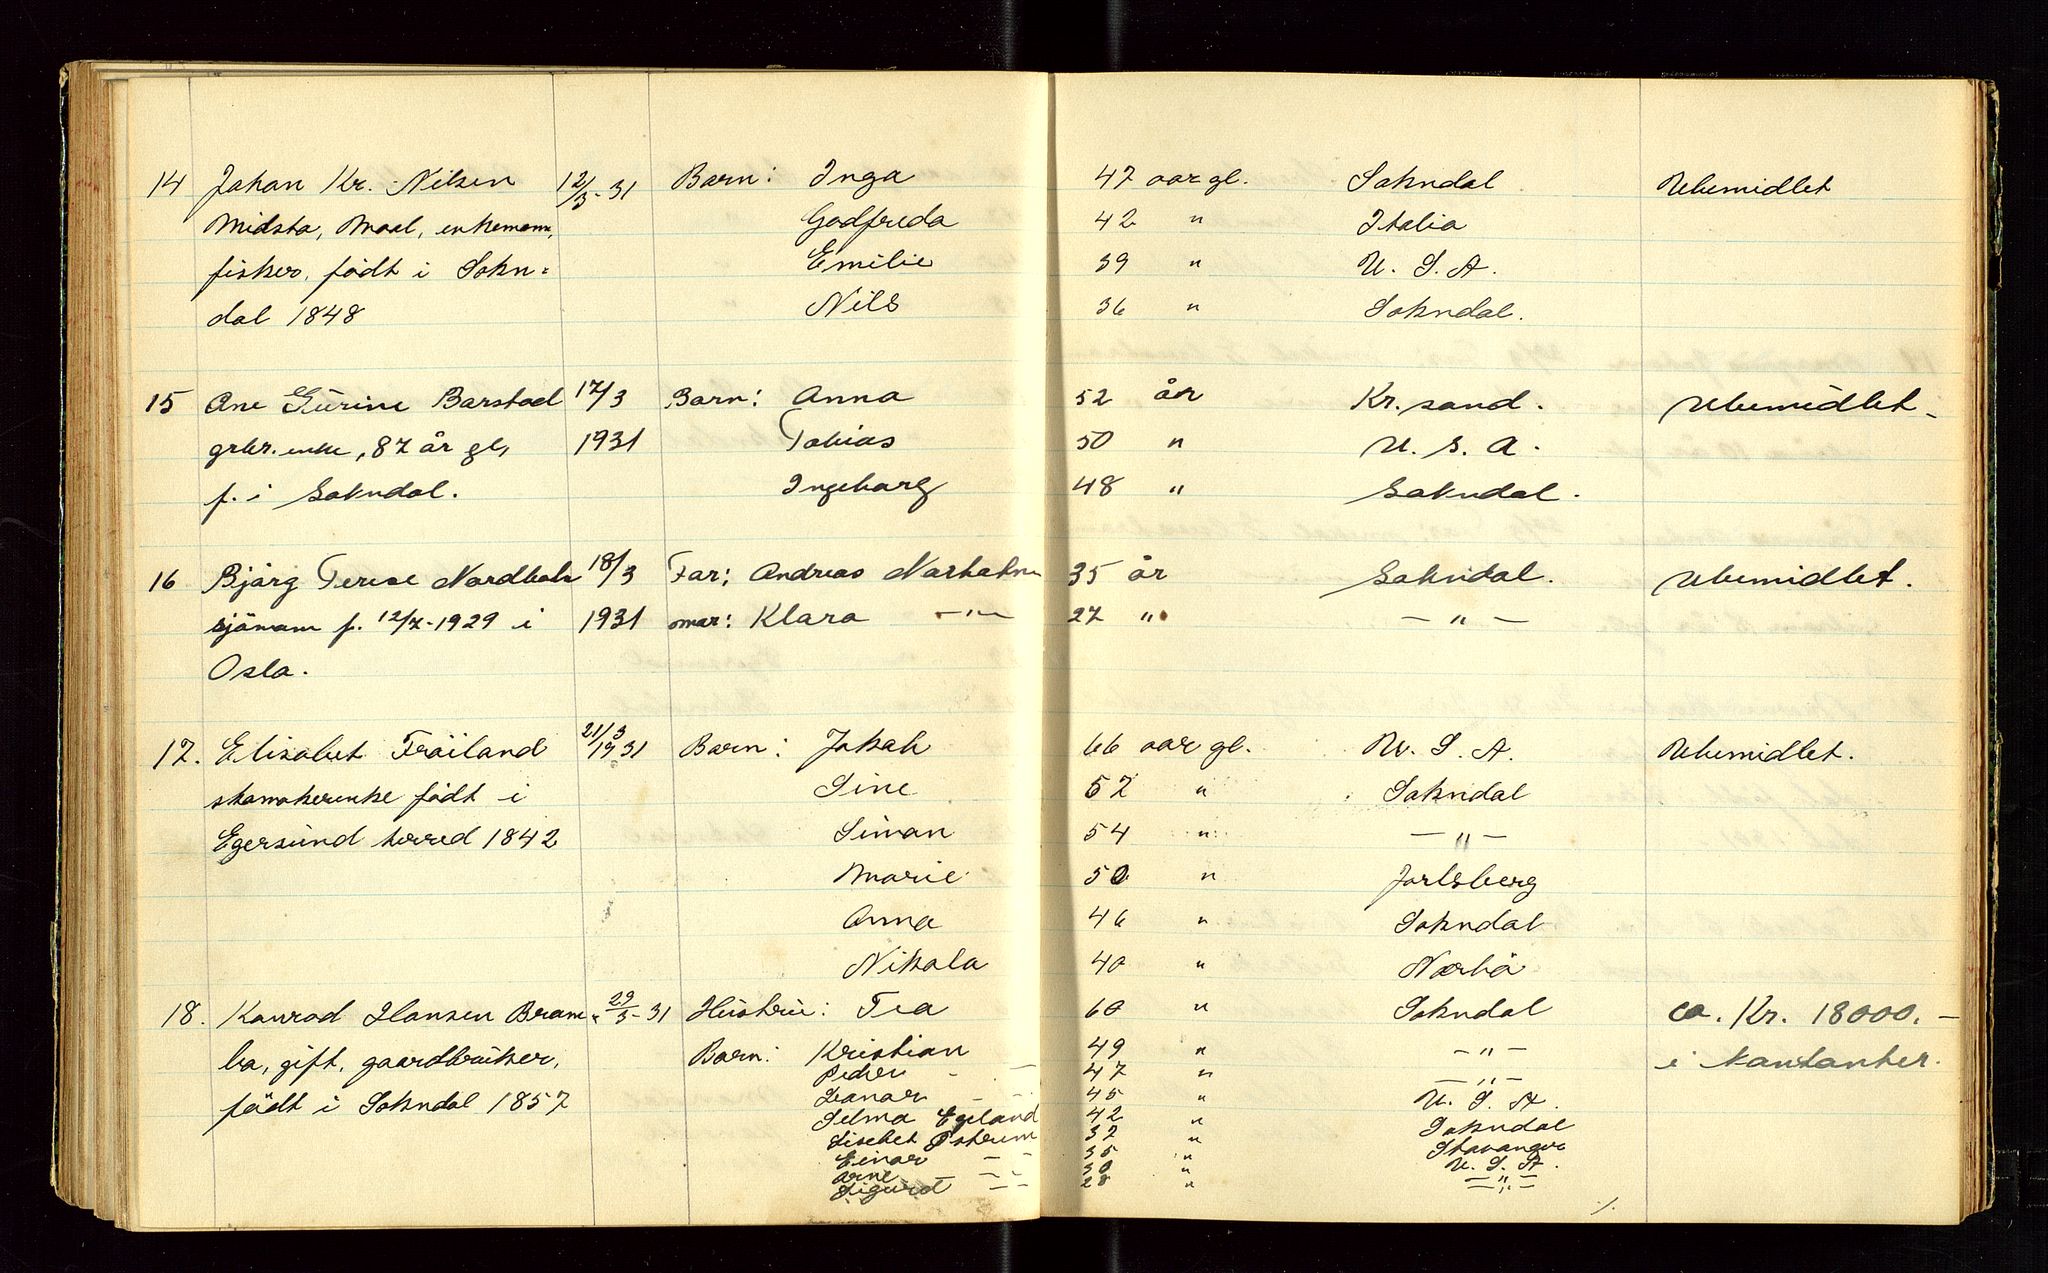 14 Johan Kr. Nilsen 12/3-31 Barn: Inga 47 aar gl. Sokndal Ubemidlet
Midsta, Moal, enkemann, Godfreda 42 " Italia
fisker, födt i Sokn= Emilie 39 " U. S. A.
dal 1848 Nils 36 " Sokndal.
15 Ane Gurine Barstad 17/3 Barn: Anna 52 år Kr.sand. Ubemidlet
grbr. enke, 87 år gl, 1931 Tobias 50 " U. S. A.
f. i Sokndal. Ingeborg 48 " Sokndal.
16 Bjørg Terese Nordbak 18/3 Far: Andreas 35 år Sokndal. Ubemidlet.
f. 12/7-1929 i 1931 mor: Klara —"— 27 " —"—
Oslo.
17. Elisabet Fröiland 21/3 1931 Barn: Jakob 66 aar gl. U. S. A. Ubemidlet.
skomakerenke födt i Sine 57 " Sokndal
Egersund herred 1842 Simon 54 " —"—
Marie 50 " Jarlsberg
Anna 46 " Sokndal
Nikola 40 " Nærbö
18. Konrad Hansen Bram= 29/3-31 Hustru: Tea 60 " Sokndal ca. Kr. 18000.—
bo, gift, gaardbruker, Barn: Kristian 49 " —"— i kontanter.
Peder - — 47 " —"—
födt i Sokndal 1857 Leonar - - 45 " U. S. A.
Selma Egeland 42 " Sokndal
Lisebet Østrem 32 " Stavanger
Einar - - 35 " U. S. A.
Arne — — 30 " —"—
Sigurd — - 28 " —"—